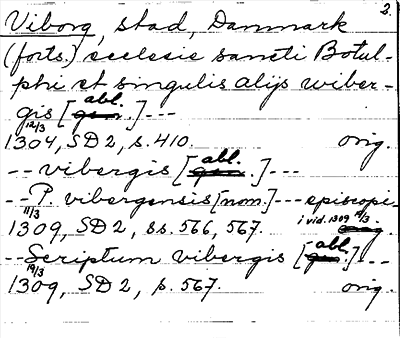 2.
Viborg, stad, Danmark
(forts.) ecclesie sancti Botul-
phi et singulis alijs wiber-
gis [abl.]---
12/3
1304, SD 2, s. 410. orig.
-- vibergis [abl.]---
-- P. vibergensis [nom.]--- episcopi-
11/3 i vid. 1309 19/3.
1309, SD 2, ss. 566, 567.
-- Scriptum vibergis [abl.]---
19/3
1309, SD 2, s. 567. orig.